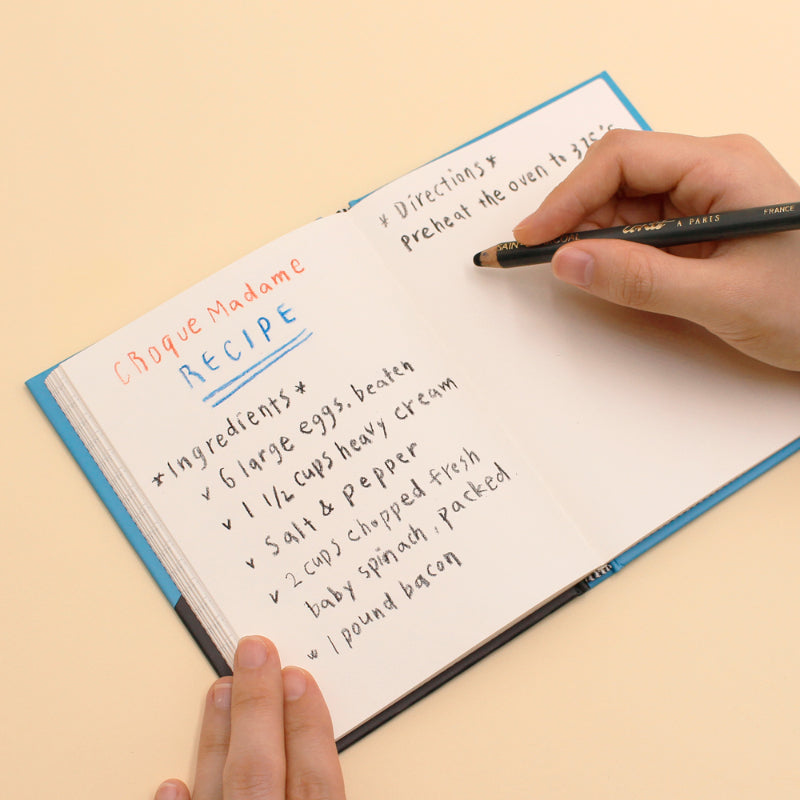 CRoque Madame
RECIPE
*Ingredients*
v 6 large eggs, beaten
v 1 1/2 cups heavy cream
v Salt & Pepper
v 2 cups chopped fresh
baby spinach, packed
v 1 pound bacon
* Directions *
preheat the oven to 375°F
conté A PARIS FRANCE